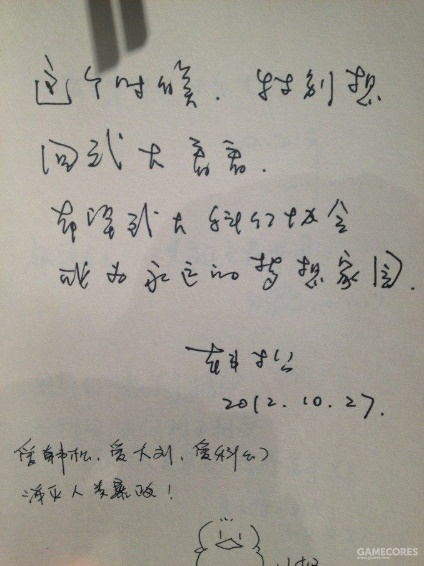 这个时候，特别想
回武大看看.
希望武大科幻协会
成为永远的梦想家园.
韩松
2012.10.27.
爱韩松，爱大刘，爱科幻
消灭人类暴政！
GAMECORES